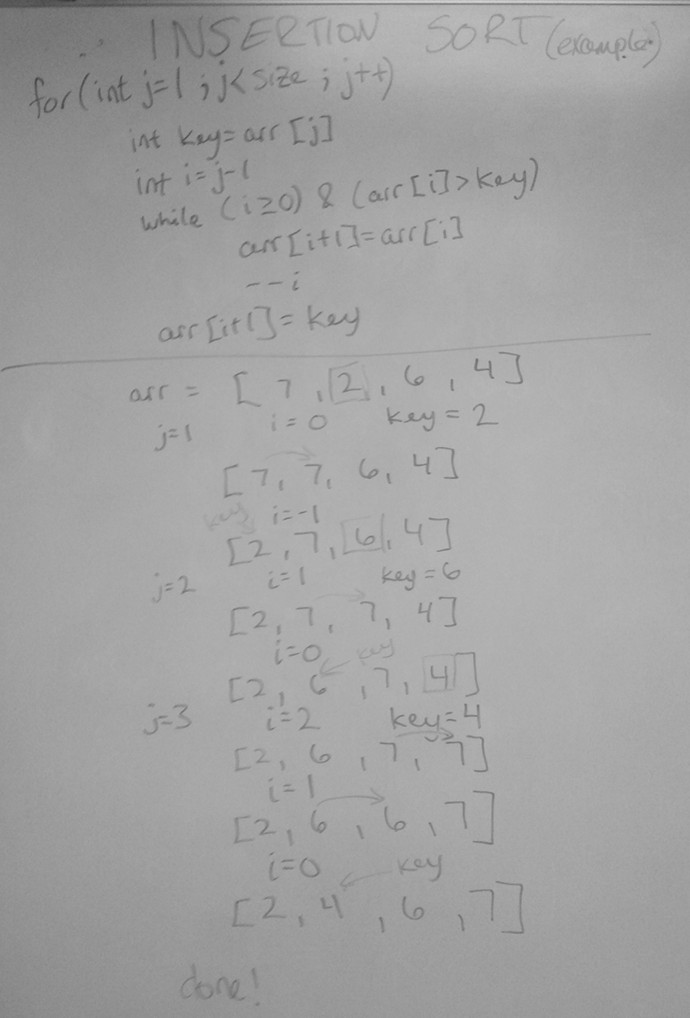 INSERTION SORT (example)
for(int j=1 ; j<size ; j++)
int key=arr[j]
int i=j-1
while (i≥0) & (arr[i]>key)
arr[i+1]=arr[i]
--i
arr[i+1]=key
arr = [ 7 , 2 , 6 , 4 ]
j=1 i=0 key=2
[7, 7, 6, 4]
key i=-1
[2, 7, 6, 4]
j=2 i=1 key=6
[2, 7, 7, 4]
i=0 key
[2, 6 , 7, 4]
j=3 i=2 key=4
[2, 6 , 7, 7]
i=1
[2, 6 , 6, 7]
i=0 key
[2, 4 , 6 , 7]
done!